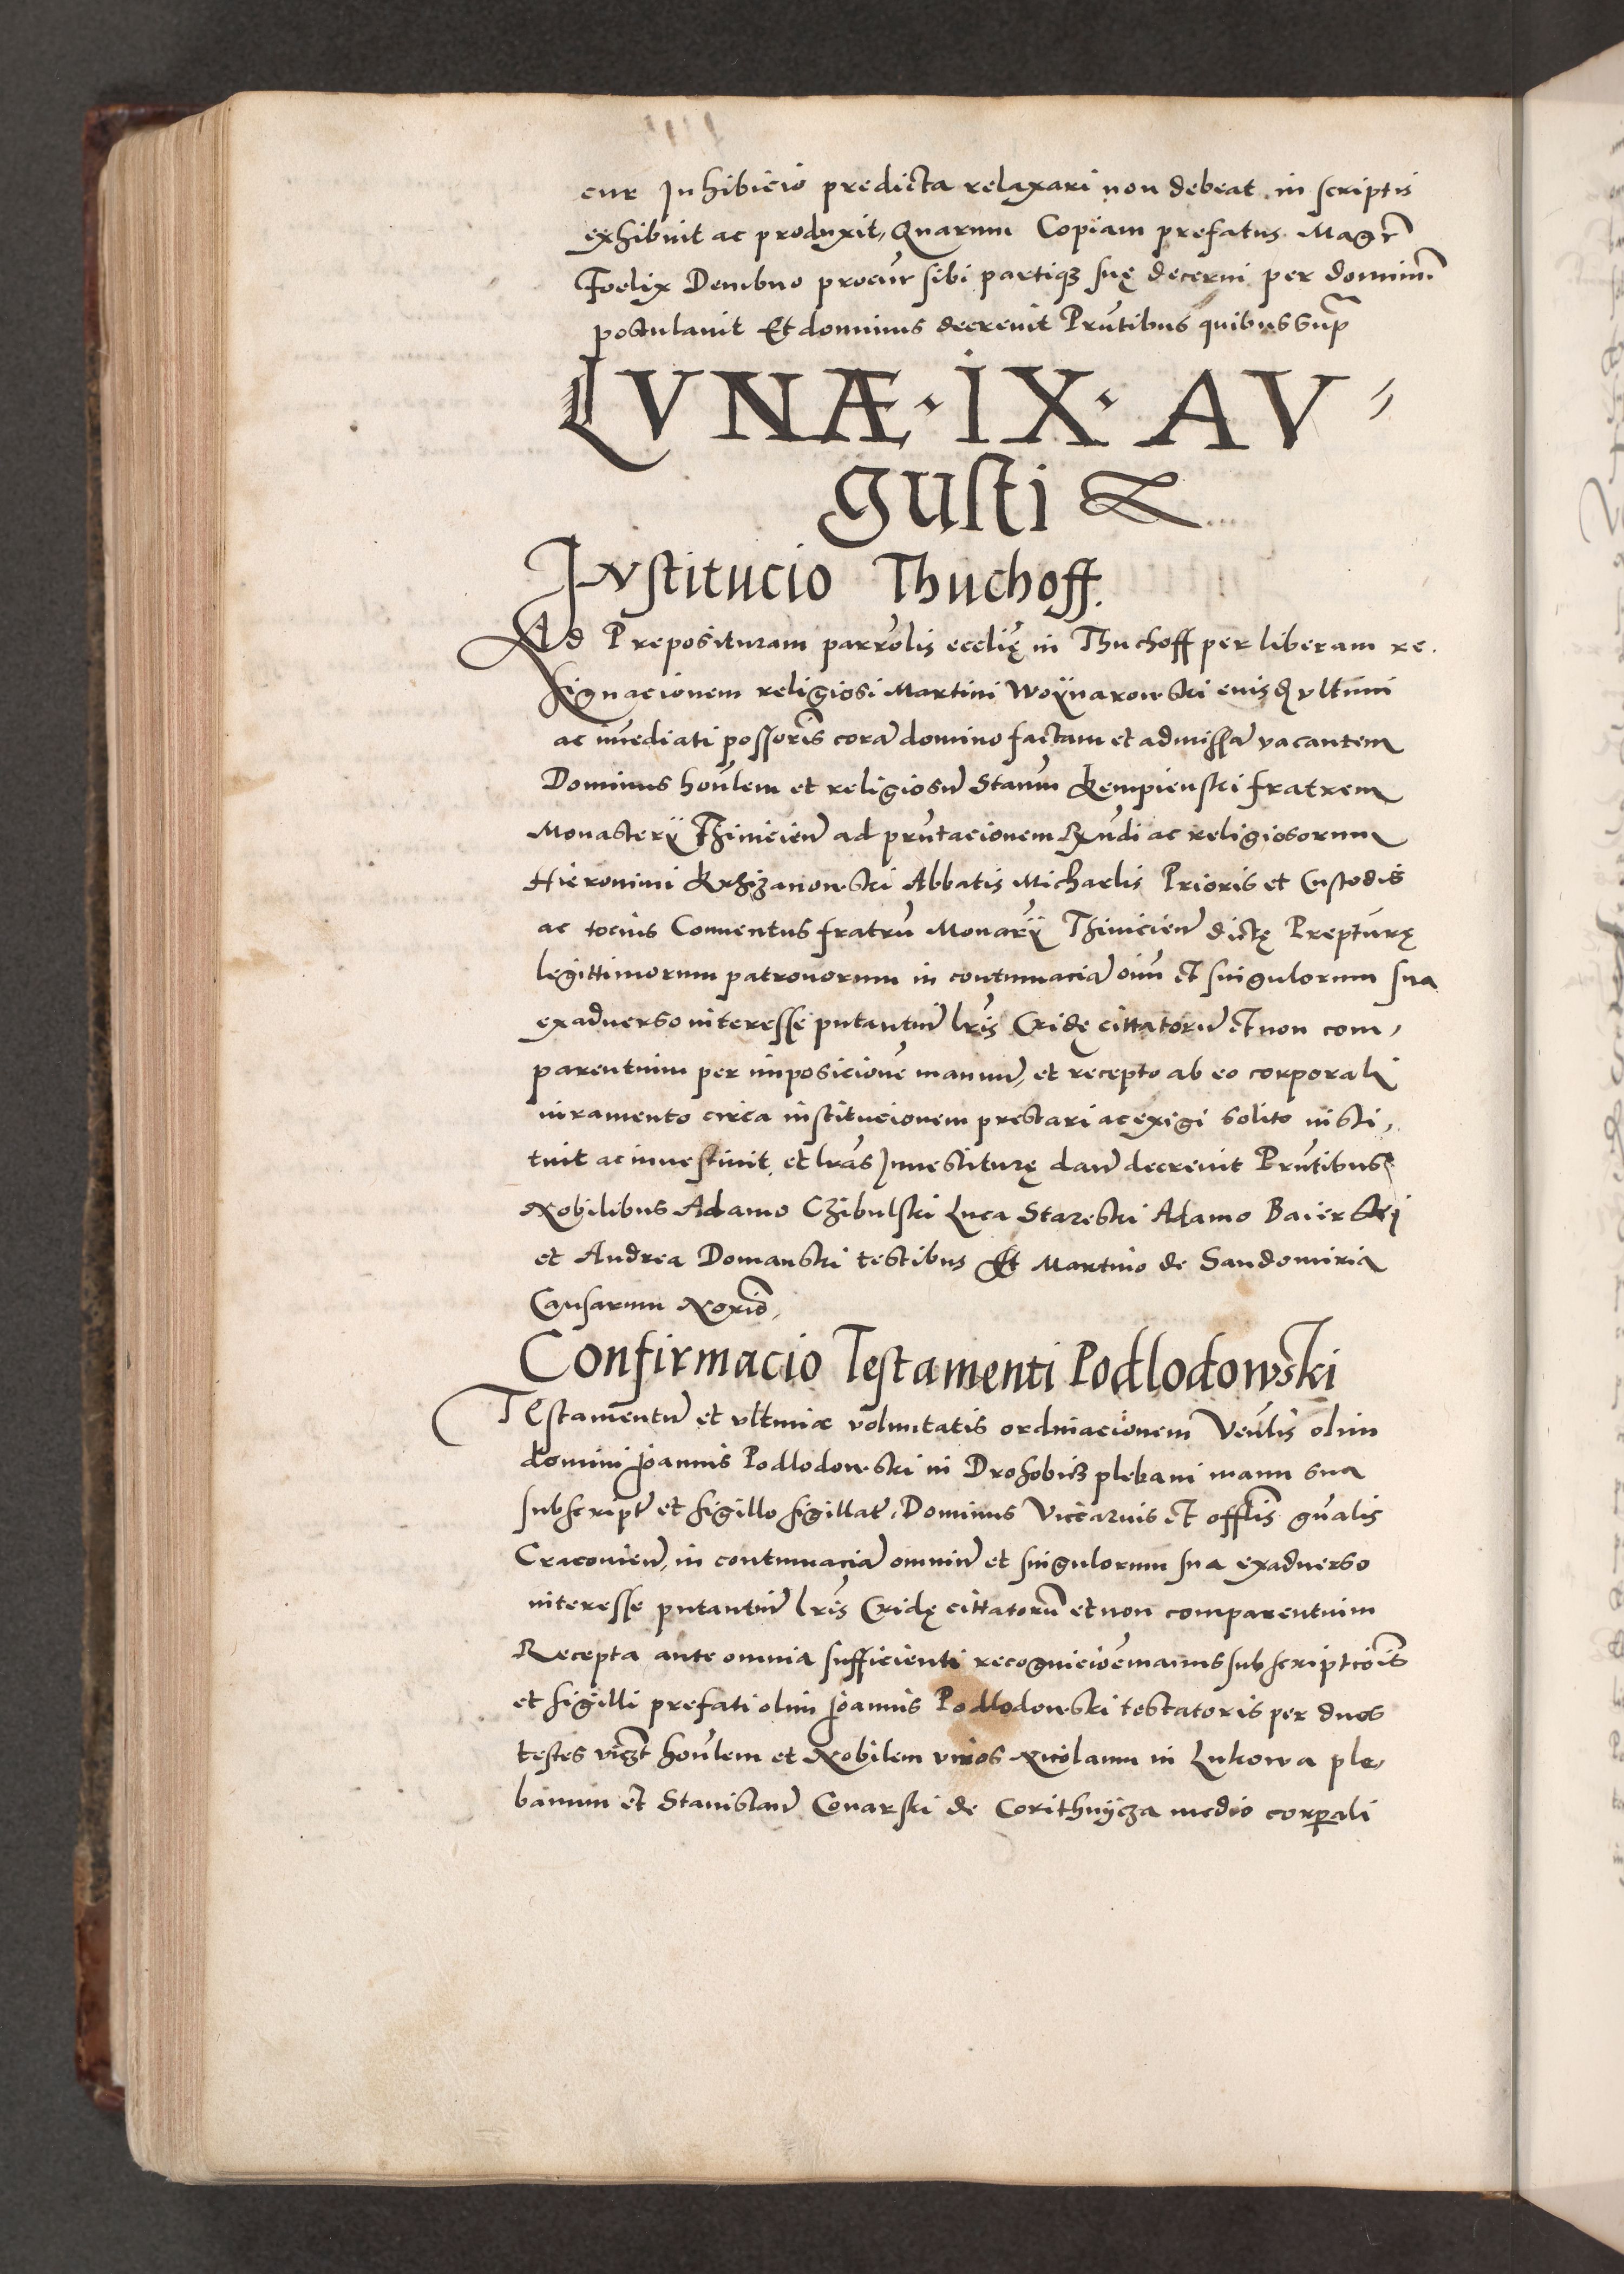 cur Inhibicio predicta relaxari non debeat in scriptis
exhibuit ac produxit, Quarum Copiam prefatus Magr
Foelix Dembno procur sibi partiq3 suę decerni per dominū
postulavit Et dominus decrevit Pr̄ntibus quibus sup̄
LVNÆ · IX · AV =
gusti &
Institucio Thuchoff.
Ad Preposituram parrōlis ecclīę in Thuchoff per liberam re.
signacionem religiosi Martini Woÿnarowski eiusd̄ vltimi
ac im̄ediati possorīs corā domino factam et admissā vacantem
Dominus honīlem et religiosū Stanm̄ Kempienski fratrem
Monasterÿ Thinicien̄ ad prn̄tacionem Rndī ac religiosorum
Hieronimi Krzizanowski Abbatis Michaelis Prioris et Custodis
ac tocius Conuentus fratrū Monarÿ Thinicien̄ dictę Prepturę
legittimorum patronorum in contumaciā oīm et singulorum sua
exaduerso interesse putantiū lrīs Cridę cittatorū et non com=
parentium per imposicionē manuū, et recepto ab eo corporali
iuramento circa institucionem prestari ac exigi solito insti=
tuit ac inuestiuit, et lrās Inuestiturę dań decreuit Prn̄tibus
Nobilibus Adamo Czibulski Luca Starzeski Adamo Baierski
et Andrea Domanski testibus Et Martino de Sandomiria
Causarum Norio,
Confirmacio Testamenti Podlodowski
TEstamentū et vltimæ voluntatis ordinacionem Venlīs olim
domini Joannis Podlodowski in Drohobicz plebani manu sua
subscript̄ et sigillo sigillat̄, Dominus Vicarius et offlīs gn̄alis
Cracouien̄, in contumaciā omniū et singulorum sua exaduerso
interesse putantiū lrīs Cridę cittatorū et non comparentium
Recepta ante omnia sufficienti recognicioē manus subscriptiōis
et sigilli prefati olim Joannis Podlodowski testatoris per duos
testes viczt honīlem et Nobilem viros Nicolaum in Lukowa ple=
banum et Stanislaū Conarski de Corithnÿcza medio corp̲ali